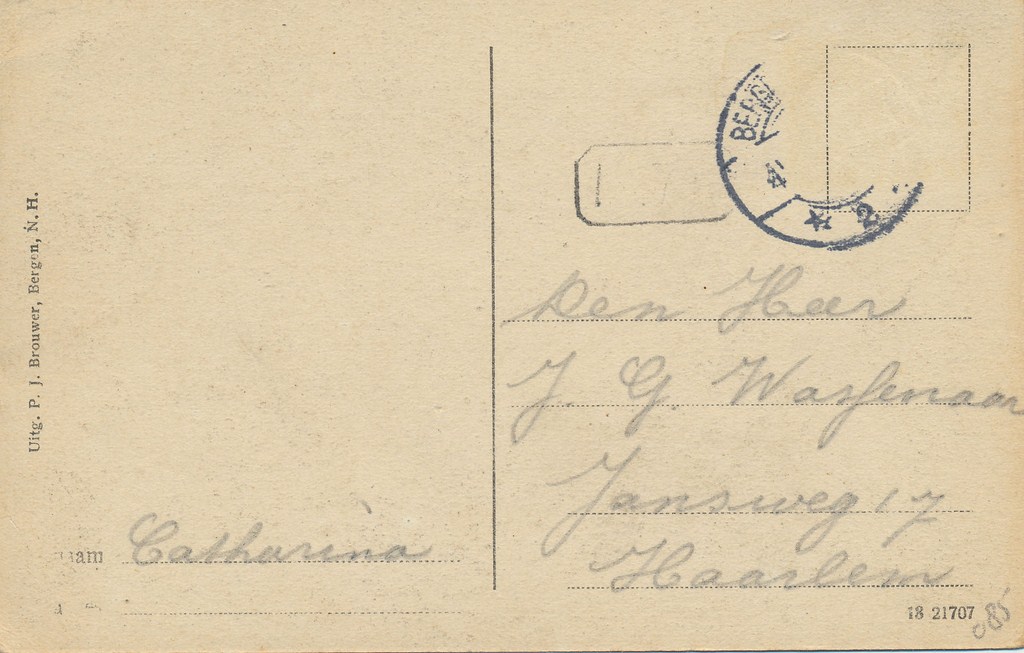 Uitg. P. J. Brouwer, Bergen, N. H.
BERG
4
2
Den Heer
J. G. Wassenaar
Jansweg 17
Haarlem
aam Catharina
18 21707
085